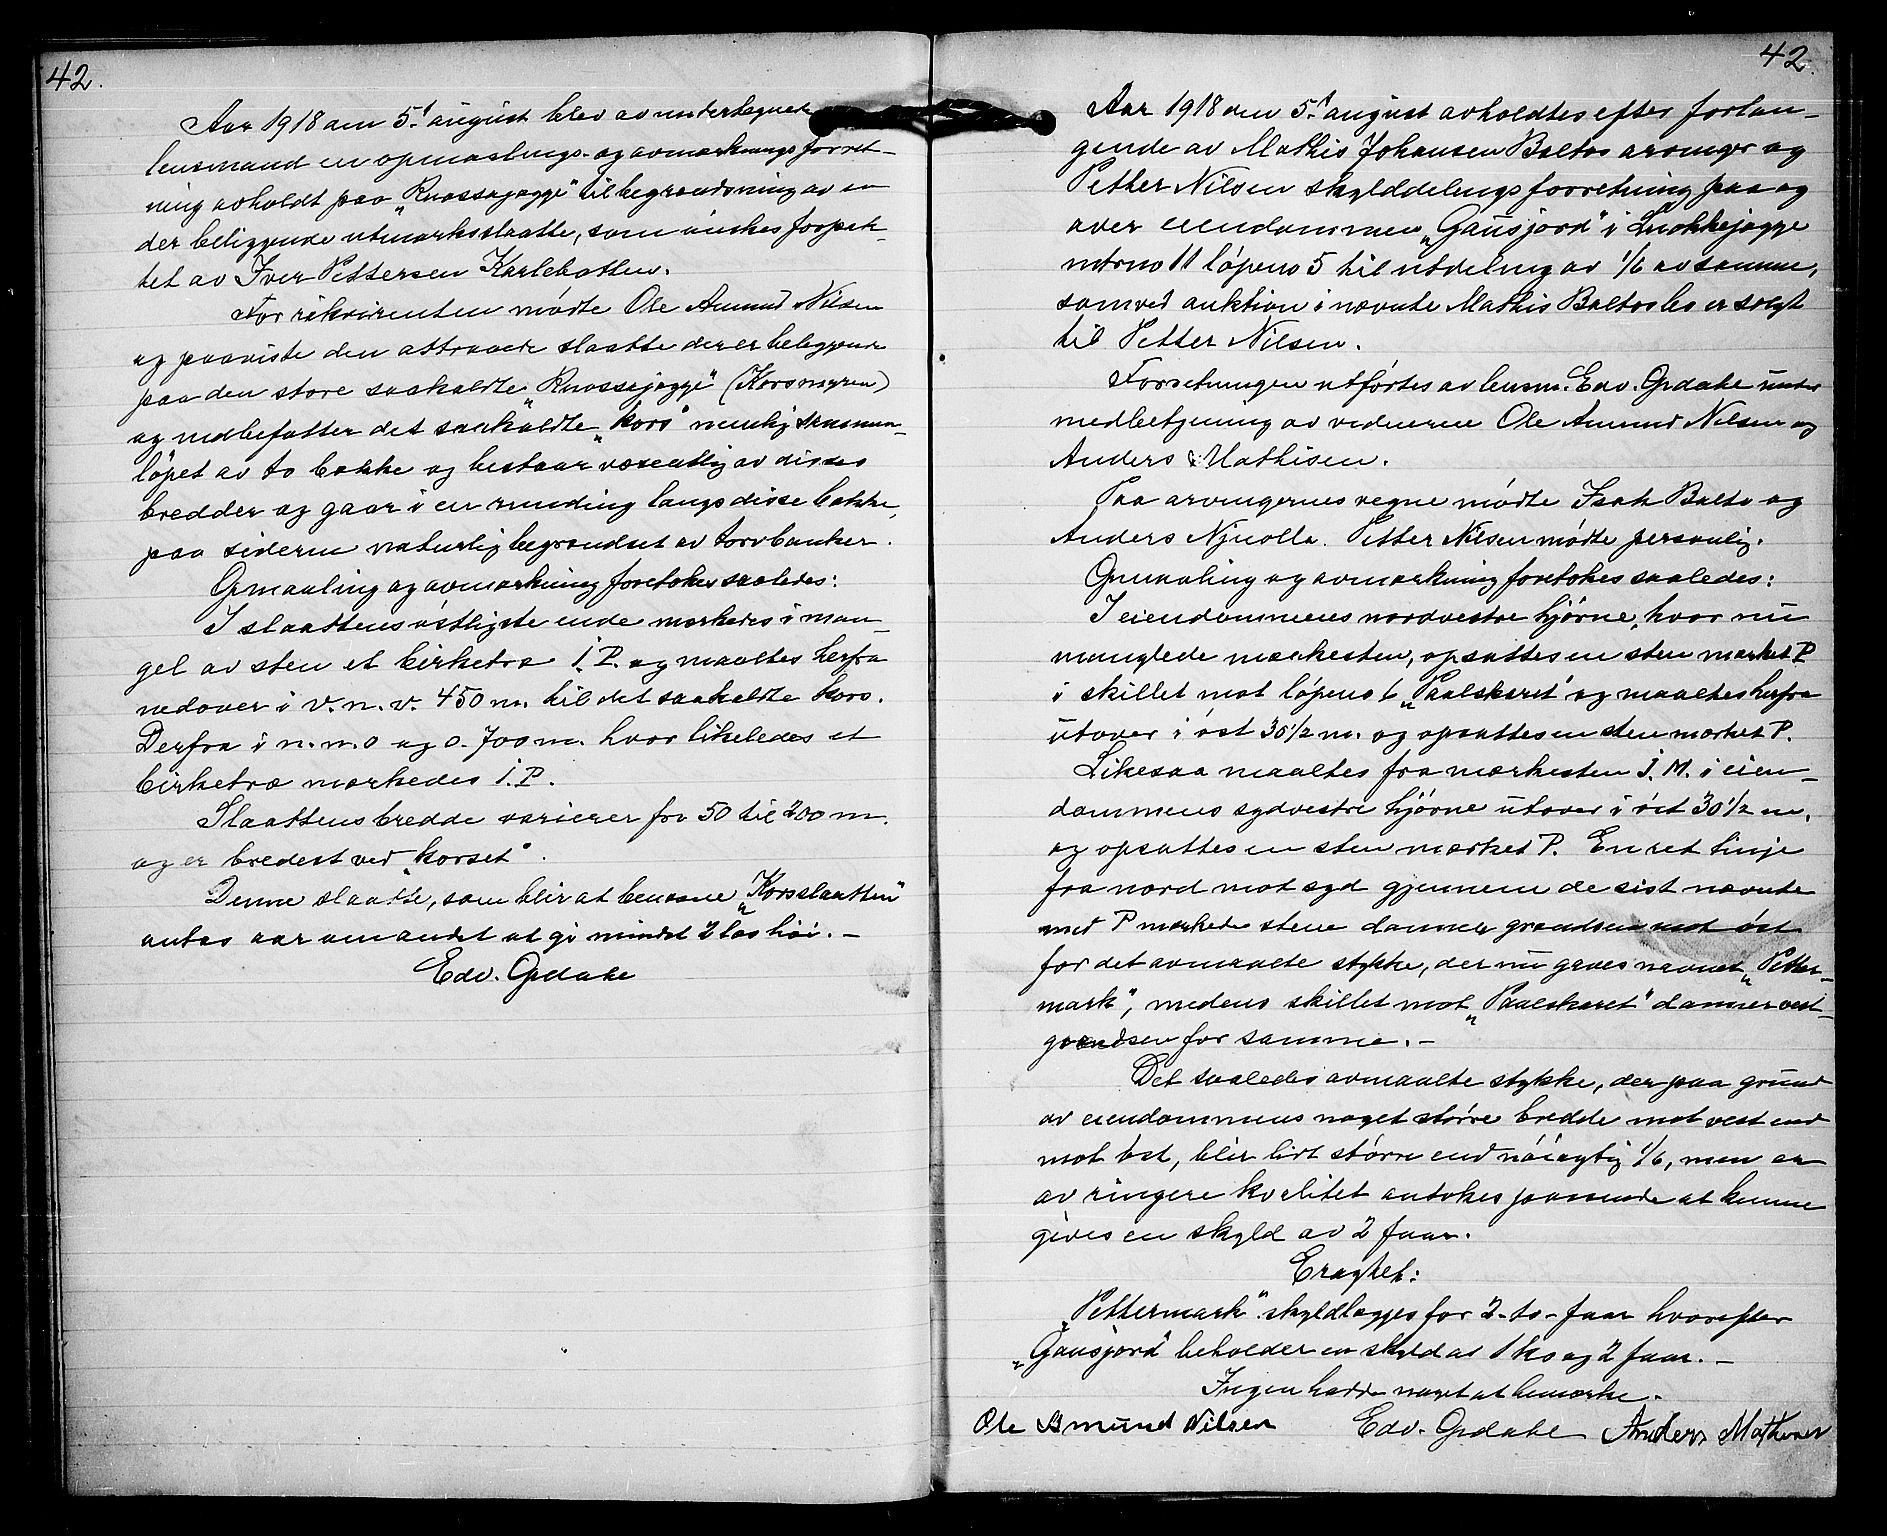 42.
Aar 1918 den 5. august blev av undertegnede
lensmand en opmaalings- og avmerknings forret-
ning avholdt paa „Ruossajægge" til begrændsning av en
der beliggende utmarksslaatte, som ønskes forpak-
tet av Iver Pettersen Karlebotten.
For rekvirenten mødte Ole Amund Nilsen
og paaviste den attraaede slaatte der er beliggende
paa den store saakaldte „Ruossajægge" (Korsmyren)
og indbefatter det saakaldte „kors" nemlig sammen-
løpet av to bække og bestaar væsentlig av disses
bredder og gaar i en runding langs disse bække,
paa siderne naturlig begrændset av torvbanker.
Opmaaling og avmerkning foretokes saaledes:
I slaattens østligste ende merkedes i man-
gel av sten et birketræ I.P. og maaltes herfra
nedover i v.n.v. 450 m. til det saakaldte kors.
Derfra i n.n.o og o. 700 m. hvor likeledes et
birketræ merkedes I.P.
Slaattens bredde varierer fra 50 til 200 m.
og er bredest ved „korset".
Denne slaatte, som blir at benævne „Korsslaatten"
antas aar om andet at gi mindst 2 las høi. -
Edv. Opdahl
42.
Aar 1918 den 5. august avholdtes efter forlan-
gende av Mathis Johansen Baltos arvinger og
Petter Nilsen skylddelingsforretning paa og
over eiendommen „Gausjord" i Luokkejægge
mtrno 11 løpeno 5 til utdeling av 1/6 av samme,
som ved auktion i nævnte Mathis Baltos bo er solgt
til Petter Nilsen.
Forretningen utførtes av lensm. Edv. Opdahl under
medbetjening av vidnerne Ole Amund Nilsen og
Anders Mathisen.
Paa arvingernes vegne mødte Isak Balto og
Anders Njuolla. Petter Nilsen mødte personlig.
Opmaaling og avmærkning foretokes saaledes:
I eiendommens nordvestre hjørne, hvor nu
manglede mærkesten, opsattes en sten mærket P
i skillet mot løpeno 6 „Paalskaret" og maaltes herfra
utover i øst 30 1/2 m. og opsattes en sten mærket P.
Likesaa maaltes fra mærkesten I. M. i eien-
dommens sydvestre hjørne utover i øst 30 1/2 m.
og opsattes en sten mærket P. En ret linje
fra nord mot syd gjennem de sist nævnte
med P mærkede stene danner grændsen mot øst
for det avmaalte stykke, der nu gaves navnet „Petter-
mark", medens skillet mot „Paalskaret" danner vest-
grændsen for samme. -
Det saaledes avmaalte stykke, der paa grund
av eiendommens noget større bredde mot vest end
mot øst, blir litt større end nøiagtig 1/6, men er
av ringere kvalitet antokes passende at kunne
gives en skyld av 2 faar.
Eragtet:
„Pettermark" skyldlægges for 2 - to - faar hvorefter
„Gausjord" beholder en skyld av 1 ko og 2 faar. -
Ingen hadde noget at bemærke.
Ole Amund Nilsen Edv. Opdahl Anders Mathisen